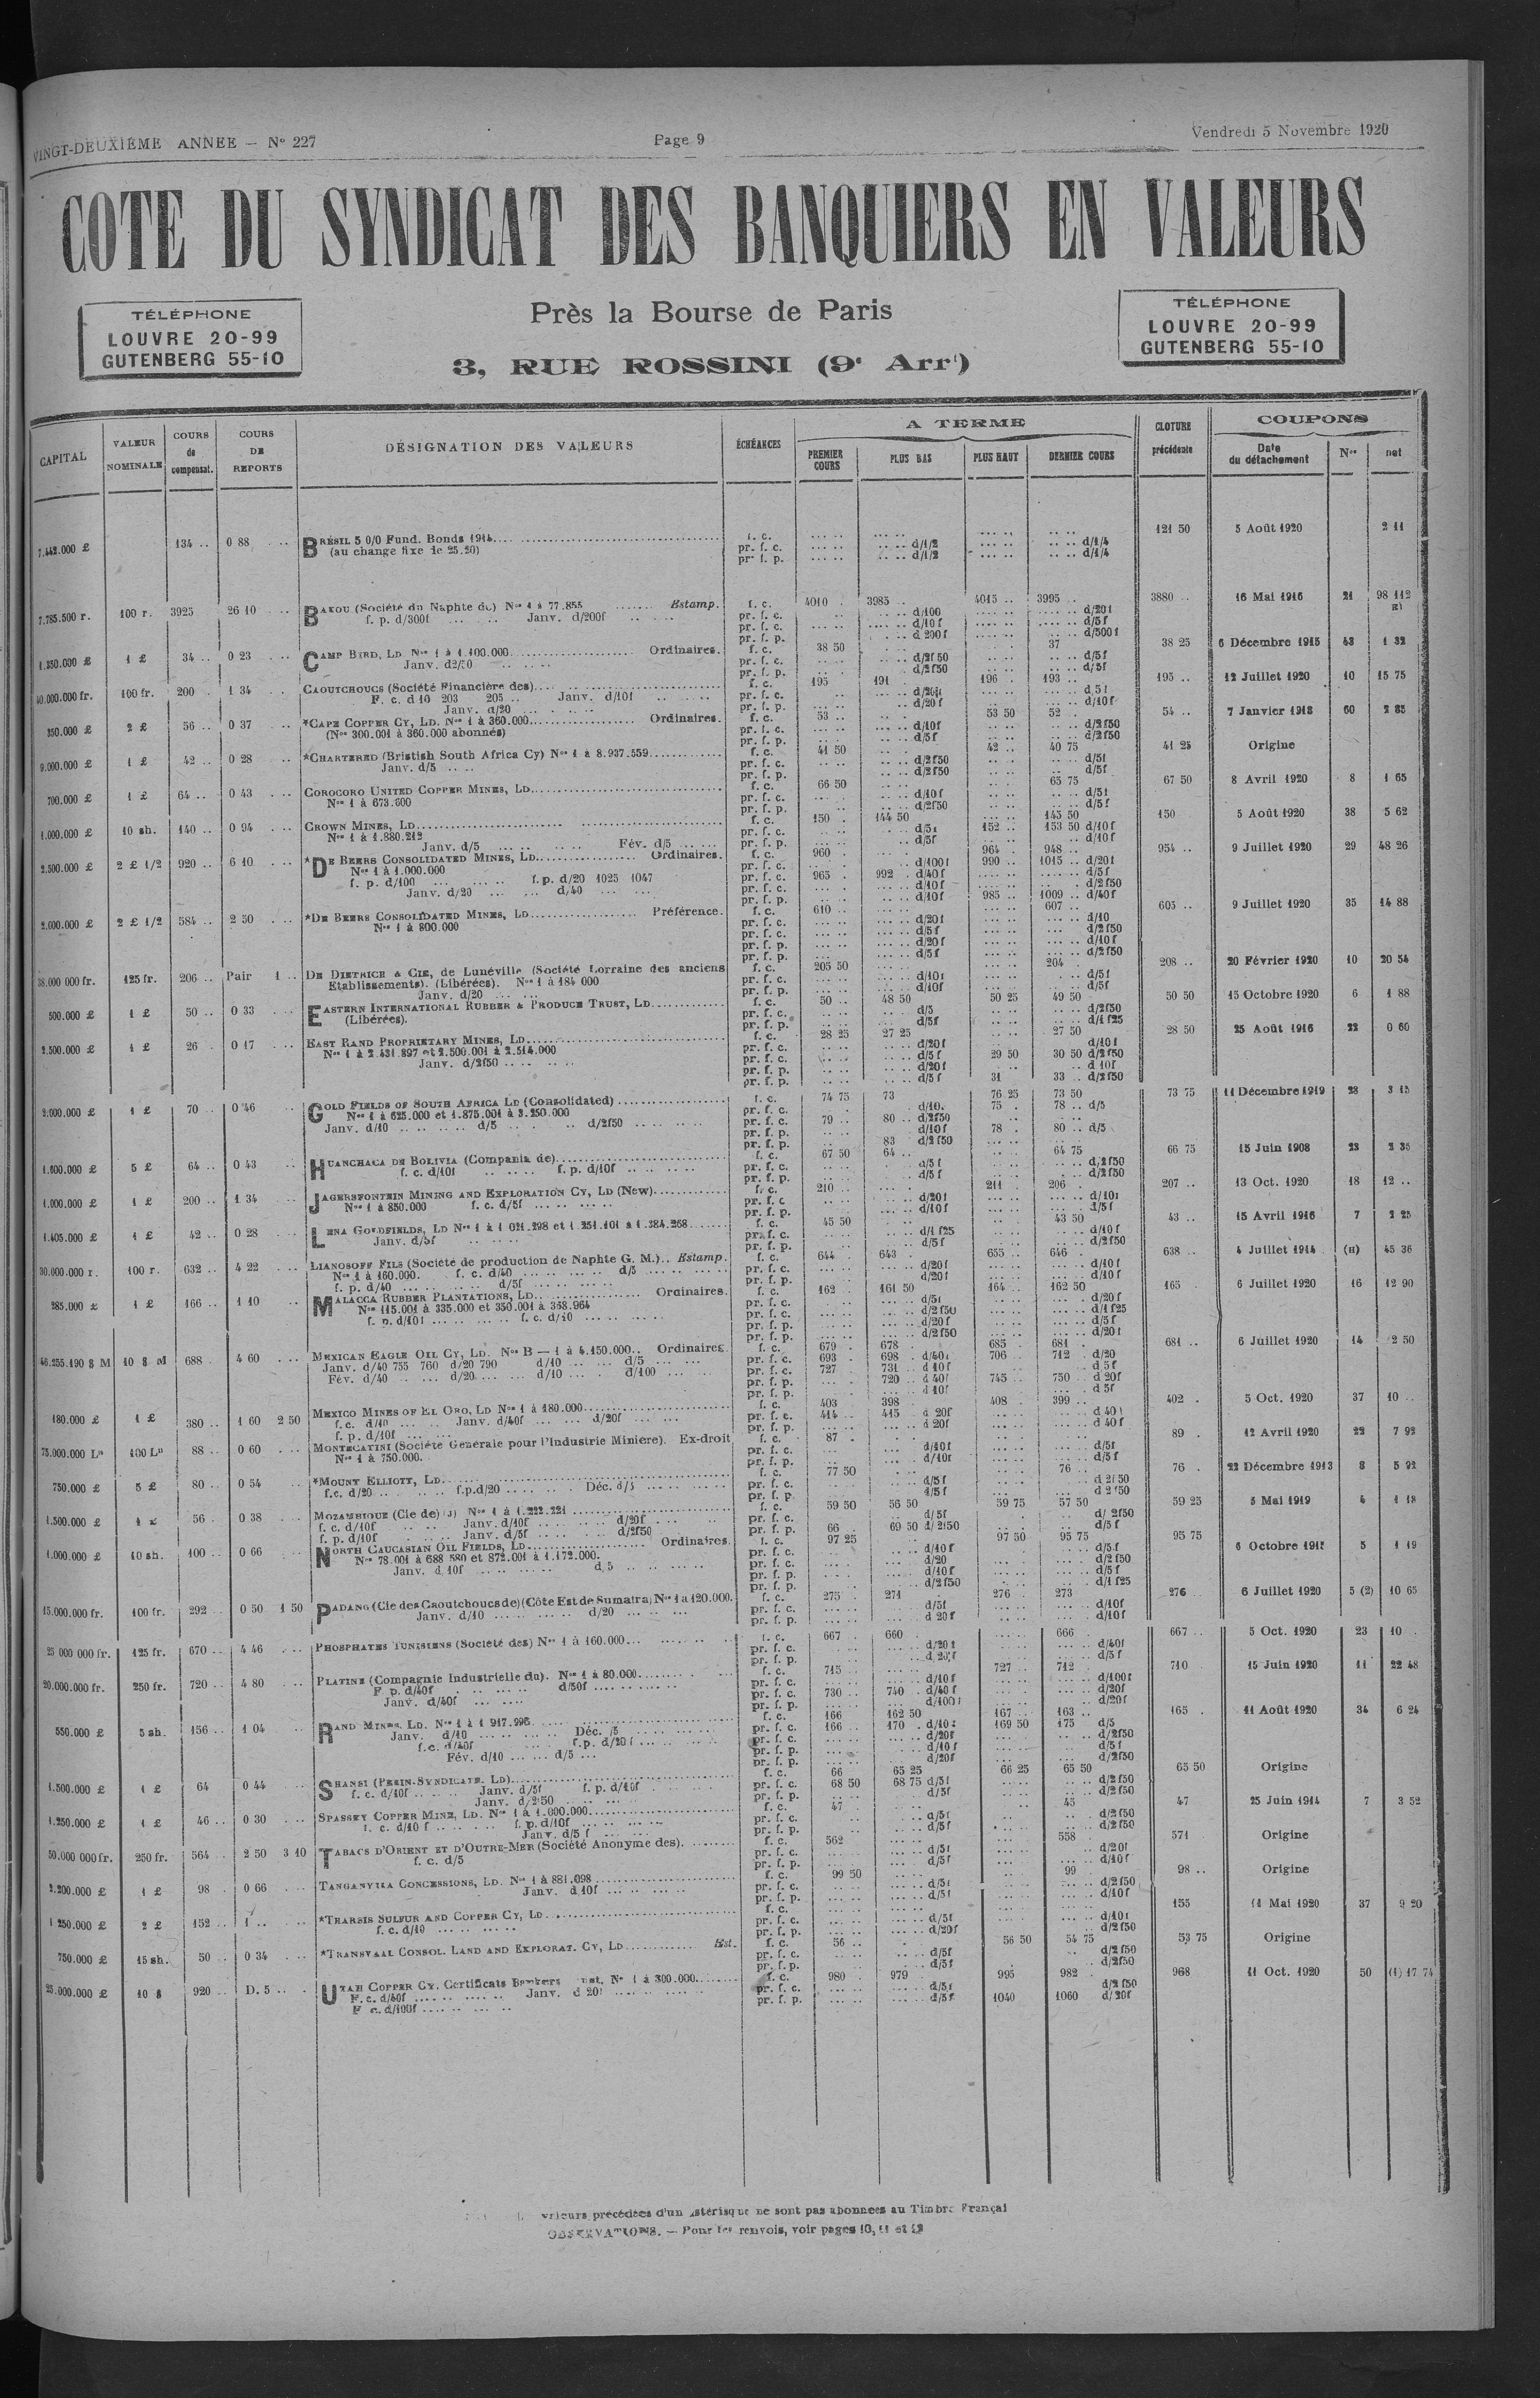 VINGT-DEUXIÈME ANNEE — N° 227 Page 9 Vendredi 5 Novembre 1920
COTE DU SYNDICAT DES BANQUIERS EN VALEURS
TÉLÉPHONE
LOUVRE 20-99
GUTENBERG 55-10
Près la Bourse de Paris
3, RUE ROSSINI (9e Arrt)
TÉLÉPHONE
LOUVRE 20-99
GUTENBERG 55-10
CAPITAL VALEUR NOMINALE COURS de compensat. COURS DE REPORTS DÉSIGNATION DES VALEURS ÉCHÉANCES A TERME PREMIER COURS PLUS BAS PLUS HAUT DERNIER COURS CLOTURE précédente COUPONS Date du détachement Nos net
7.442.000 £ 134 .. 0 88 BRÉSIL 5 0/0 Fund. Bonds 1914 f. c. 121 50 5 Août 1920 2 11
(au change fixe de 25.20) pr. f. c. d/1/2 d/1/4
pr. f. p. d/1/2 d/1/4
7.785.500 r. 100 r. 3925 26 10 BAKOU (Société du Naphte de) Nos 1 à 77.855 Estamp. f. c. 4010 3985 4015 3995 3880 16 Mai 1916 21 98 112
f. p. d/300f Janv. d/200f pr. f. c. d/100 d/20f
pr. f. c. d/10f d/5f
pr. f. p. d 200f d/500f
1.350.000 £ 1 £ 34 .. 0 23 CAMP BIRD, LD. Nos 1 à 1.100.000 Ordinaires. f. c. 38 50 37 38 25 6 Décembre 1915 43 1 32
Janv. d2/50 pr. f. c. d/2f50 d/5f
pr. f. p. d/2f50 d/5f
40.000.000 fr. 100 fr. 200 1 34 CAOUTCHOUCS (Société Financière des) f. c. 195 191 196 193 195 12 Juillet 1920 10 15 75
F. c. d 10 203 205 Janv. d/10f pr. f. c. d/20f d 5f
Janv. d/20 pr. f. p. d/20f d/10f
350.000 £ 2 £ 56 .. 0 37 *CAPE COPPER CY, LD. Nos 1 à 360.000 Ordinaires. f. c. 53 53 50 52 54 7 Janvier 1918 60 2 85
(Nos 300.001 à 360.000 abonnés) pr. f. c. d/10f d/2f50
pr. f. p. d/5f d/2f50
9.000.000 £ 1 £ 42 .. 0 28 *CHARTERED (Bristish South Africa Cy) Nos 1 à 8.937.559 f. c. 41 50 42 40 75 41 25 Origine
Janv. d/5 pr. f. c. d/2f50 d/5f
pr. f. p. d/2f50 d/5f
700.000 £ 1 £ 64 .. 0 43 COROCORO UNITED COPPER MINES, LD f. c. 66 50 65 75 67 50 8 Avril 1920 8 1 65
Nos 1 à 673.600 pr. f. c. d/10f d/5f
pr. f. p. d/2f50 d/5f
1.000.000 £ 10 sh. 140 .. 0 94 CROWN MINES, LD f. c. 150 144 50 145 50 150 5 Août 1920 38 5 62
Nos 1 à 1.880.212 pr. f. c. d/5f 152 153 50 d/10f
Janv. d/5 Fév. d/5 pr. f. p. d/5f d/10f
2.500.000 £ 2 £ 1/2 920 .. 6 10 *DE BEERS CONSOLIDATED MINES, LD Ordinaires. f. c. 960 964 948 954 9 Juillet 1920 29 48 26
Nos 1 à 1.000.000 pr. f. c. d/100f 990 1015 d/20f
f. p. d/100 f. p. d/20 1025 1047 pr. f. c. 965 992 d/40f d/5f
Janv. d/20 d/40 pr. f. c. d/10f d/2f50
pr. f. p. d/10f 985 1009 d/40f
2.000.000 £ 2 £ 1/2 584 .. 2 50 *DE BEERS CONSOLIDATED MINES, LD Préférence. f. c. 610 607 605 9 Juillet 1920 35 14 88
Nos 1 à 800.000 pr. f. c. d/20f d/10
pr. f. c. d/5f d/2f50
pr. f. p. d/20f d/10f
pr. f. p. d/5f d/2f50
38.000 000 fr. 125 fr. 206 .. Pair 1 .. DE DIETRICH & CIE, de Lunéville (Société Lorraine des anciens f. c. 205 50 204 208 20 Février 1920 10 20 54
Etablissements). (Libérées). Nos 1 à 184 000 pr. f. c. d/10f d/5f
Janv. d/20 pr. f. p. d/10f d/5f
500.000 £ 1 £ 50 .. 0 33 EASTERN INTERNATIONAL RUBBER & PRODUCE TRUST, LD f. c. 50 48 50 50 25 49 50 50 50 15 Octobre 1920 6 1 88
(Libérées). pr. f. c. d/5 d/2f50
pr. f. p. d/5f d/1 f25
2.500.000 £ 1 £ 26 0 17 EAST RAND PROPRIETARY MINES, LD f. c. 28 25 27 25 27 50 28 50 25 Août 1916 22 0 60
Nos 1 à 2.431.897 et 2.500.001 à 2.514.000 pr. f. c. d/20f d/10f
Janv. d/2f50 pr. f. c. d/5f 29 50 30 50 d/2f50
pr. f. p. d/20f d 10f
pr. f. p. d/5f 31 33 d/2f50
2.000.000 £ 1 £ 70 .. 0 46 GOLD FIELDS OF SOUTH AFRICA LD (Consolidated) f. c. 74 75 73 76 25 73 50 73 75 11 Décembre 1919 28 3 15
Nos 1 à 625.000 et 1.875.001 à 3.250.000 pr. f. c. d/10 75 78 d/5
Janv. d/10 d/5 d/2f50 pr. f. c. 79 80 d/2f50
pr. f. p. d/10f 78 80 d/5
pr. f. p. 83 d/2 f50
1.600.000 £ 5 £ 64 .. 0 43 HUANCHACA DE BOLIVIA (Compania de) f. c. 67 50 64 64 75 66 75 15 Juin 1908 23 2 35
f. c. d/10f f. p. d/10f pr. f. c. d/5f d/2f50
pr. f. p. d/5f d/2f50
1.000.000 £ 1 £ 200 .. 1 34 JAGERSFONTEIN MINING AND EXPLORATION CY, LD (New) f. c. 210 211 206 207 13 Oct. 1920 18 12 ..
Nos 1 à 850.000 f. c. d/5f pr. f. c. d/20f d/10f
pr. f. p. d/10f d/5f
1.405.000 £ 1 £ 42 .. 0 28 LENA GOLDFIELDS, LD Nos 1 à 1 021.298 et 1.251.101 à 1.384.268 f. c. 45 50 43 50 43 15 Avril 1916 7 2 25
Janv. d/5f pr. f. c. d/1 f25 d/10f
pr. f. p. d/5f d/2f50
30.000.000 r. 100 r. 632 .. 4 22 LIANOSOFF FILS (Société de production de Naphte G. M.) Estamp. f. c. 644 643 655 646 638 4 Juillet 1914 (H) 45 36
Nos 1 à 160.000. f. c. d/40 d/5 pr. f. c. d/20f d/10f
f. p. d/40 d/5f pr. f. p. d/20f d/10f
285.000 £ 1 £ 166 .. 1 10 MALACCA RUBBER PLANTATIONS, LD Ordinaires. f. c. 162 161 50 164 162 50 165 6 Juillet 1920 16 12 90
Nos 115.001 à 335.000 et 350.001 à 368.964 pr. f. c. d/5f d/20f
f. p. d/10f f. c. d/10 pr. f. c. d/2f50 d/1 f25
pr. f. p. d/20f d/5f
pr. f. p. d/2f50 d/20f
46.255.190 $ M 10 $ M 688 4 60 MEXICAN EAGLE OIL CY, LD. Nos B — 1 à 4.150.000 Ordinaires. f. c. 679 678 685 681 681 6 Juillet 1920 14 2 50
Janv. d/40 755 760 d/20 790 d/10 d/5 pr. f. c. 693 698 d/40f 706 712 d/20
Fév. d/40 d/20 d/10 d/100 pr. f. c. 727 731 d 10f d 5f
pr. f. p. 720 d 40f 745 750 d 20f
pr. f. p. d 10f d 5f
180.000 £ 1 £ 380 1 60 2 50 MEXICO MINES OF EL ORO, LD Nos 1 à 180.000 f. c. 403 398 408 399 402 5 Oct. 1920 37 10 ..
f.c. d/10 Janv. d/40f d/20f pr. f. c. 414 415 d 20f d 40f
f. p. d/10f pr. f. p. d 20f d 40f
75.000.000 La 100 La 88 .. 0 60 MONTECATINI (Société Générale pour l'Industrie Minière). Ex-droit f. c. 87 89 12 Avril 1920 22 7 92
Nos 1 à 750.000. pr. f. c. d/10f d/5f
pr. f. p. d/10f d/5f
750.000 £ 5 £ 80 .. 0 54 *MOUNT ELLIOTT, LD f. c. 77 50 76 76 22 Décembre 1913 8 5 92
f.c. d/20 f.p.d/20 Déc. d/5 pr. f. c. d/5f d 2f50
pr. f. p. d/5f d 2f50
1.500.000 £ 1 £ 56 0 38 MOZAMBIQUE (Cie de) (J) Nos 1 à 1.222.221 f. c. 59 50 56 50 59 75 57 50 59 25 5 Mai 1919 4 1 18
f. c. d/10f Janv. d/10f d/20f pr. f. c. d/5f d/2f50
f. p. d/10f Janv. d/5f d/2f50 pr. f. p. 66 69 50 d/2f50 d/5f
1.000.000 £ 10 sh. 100 .. 0 66 NORTH CAUCASIAN OIL FIELDS, LD Ordinaires. f. c. 97 25 97 50 95 75 95 75 6 Octobre 5 1 19
Nos 78.001 à 688 580 et 872.001 à 1.172.000. pr. f. c. d/10f d/5f
Janv. d 10f d 5 pr. f. c. d/20 d/2f50
pr. f. p. d/10f d/5f
pr. f. p. d/2f50 d/1 f25
15.000.000 fr. 100 fr. 292 .. 0 50 1 50 PADANG (Cie des Caoutchoucs de) (Côte Est de Sumatra) Nos 1 à 120.000. f. c. 275 271 276 273 276 6 Juillet 1920 5 (2) 10 65
Janv. d/10 d/20 pr. f. c. d/5f d/10f
pr. f. p. d 20f d/10f
25 000 000 fr. 125 fr. 670 .. 4 46 PHOSPHATES TUNISIENS (Société des) Nos 1 à 160.000 f. c. 667 660 666 667 5 Oct. 1920 23 10
pr. f. c. d/20f d/40f
pr. f. p. d 20f d/5f
20.000.000 fr. 250 fr. 720 .. 4 80 PLATINE (Compagnie Industrielle du). Nos 1 à 80.000 f. c. 715 727 712 710 15 Juin 1920 11 22 48
F. p. d/40f d/50f pr. f. c. d/10f d/100f
Janv. d/40f pr. f. c. 730 740 d/40f d/20f
pr. f. p. d/100f d/20f
550.000 £ 5 sh. 156 .. 1 04 RAND MINES, LD. Nos 1 à 1 917.996 f. c. 166 162 50 167 163 165 11 Août 1920 34 6 24
Janv. d/10 Déc. /5 pr. f. c. 166 170 d/10f 169 50 175 d/5
f.c. d/40f f.p. d/20f pr. f. c. d/20f d/2f50
Fév. d/10 d/5 pr. f. p. d/10f d/5f
pr. f. p. d/20f d/2f50
1.500.000 £ 1 £ 64 0 44 SHANSI (PEKIN-SYNDICATE. LD) f. c. 66 65 25 66 25 65 50 65 50 Origine
f. c. d/10f Janv. d/5f f. p. d/10f pr. f. c. 68 50 68 75 d/5f d/2f50
Janv. d/2f50 pr. f. p. d/5f d/2f50
1.250.000 £ 1 £ 46 .. 0 30 SPASSKY COPPER MINE, LD. Nos 1 à 1.000.000 f. c. 47 45 47 25 Juin 1914 7 3 52
f. c. d/10 f f. p. d/10f pr. f. c. d/5f d/2f50
Janv. d/5 f pr. f. p. d/5f d/2f50
50.000 000 fr. 250 fr. 564 .. 2 50 3 10 TABACS D'ORIENT ET D'OUTRE-MER (Société Anonyme des). f. c. 562 558 571 Origine
f. c. d/5 pr. f. c. d/5f d/20f
pr. f. p. d/5f d/10f
2.200.000 £ 1 £ 98 0 66 TANGANYIKA CONCESSIONS, LD. Nos 1 à 881.098 f. c. 99 50 99 98 .. Origine
Janv. d 10f pr. f. c. d/5f d/2f50
pr. f. p. d/5f d/10f
1 250.000 £ 2 £ 152 .. 1 .. *THARSIS SULFUR AND COPPER CY, LD f. c. 155 11 Mai 1920 37 9 20
f. c. d/10 pr. f. c. d/5f d/10f
pr. f. p. d/20f d/2f50
750.000 £ 15 sh. 50 .. 0 34 *TRANSVAAL CONSOL. LAND AND EXPLORAT. CY, LD Est. f. c. 56 56 50 54 75 53 75 Origine
pr. f. c. d/5f d/2f50
pr. f. p. d/5f d/2f50
25.000.000 £ 10 $ 920 .. D. 5 UTAH COPPER CY. Certificats Bankers Nos 1 à 300.000 f. c. 980 979 995 982 968 11 Oct. 1920 50 (1) 17 74
F. c. d/40f Janv. d 20f pr. f. c. d/5f d/2 f50
F c. d/100f pr. f. p. d/5f 1040 1060 d/20f
valeurs précédées d'un astérisque ne sont pas abonnées au Timbre Françai
OBSERVATIONS. — Pour les renvois, voir pages 10, 11 et 12